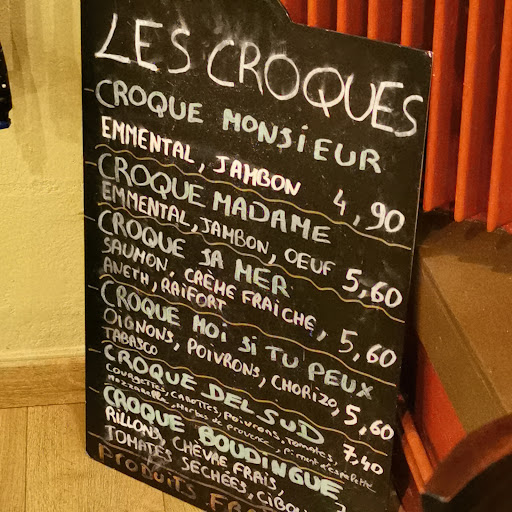 LES CROQUES
CROQUE MONSIEUR
EMMENTAL, JAMBON 4,90
CROQUE MADAME
EMMENTAL, JAMBON, OEUF 5,60
CROQUE SA MER
SAUMON, CRÈME FRAICHE,
ANETH, RAIFORT 5,60
CROQUE MOI SI TU PEUX
OIGNONS, POIVRONS, CHORIZO,
TABASCO 5,60
CROQUE DEL SUD
COURGETTES, CAROTTES, POIVRONS, TOMATES, 7,40
MOZZARELLA, HERBES DE PROVENCE, PIMENT d'ESPELETTE
CROQUE BOUDINGUE
RILLONS, CHÈVRE FRAIS,
TOMATES SÉCHÉES, CIBOU
PRODUITS FRA